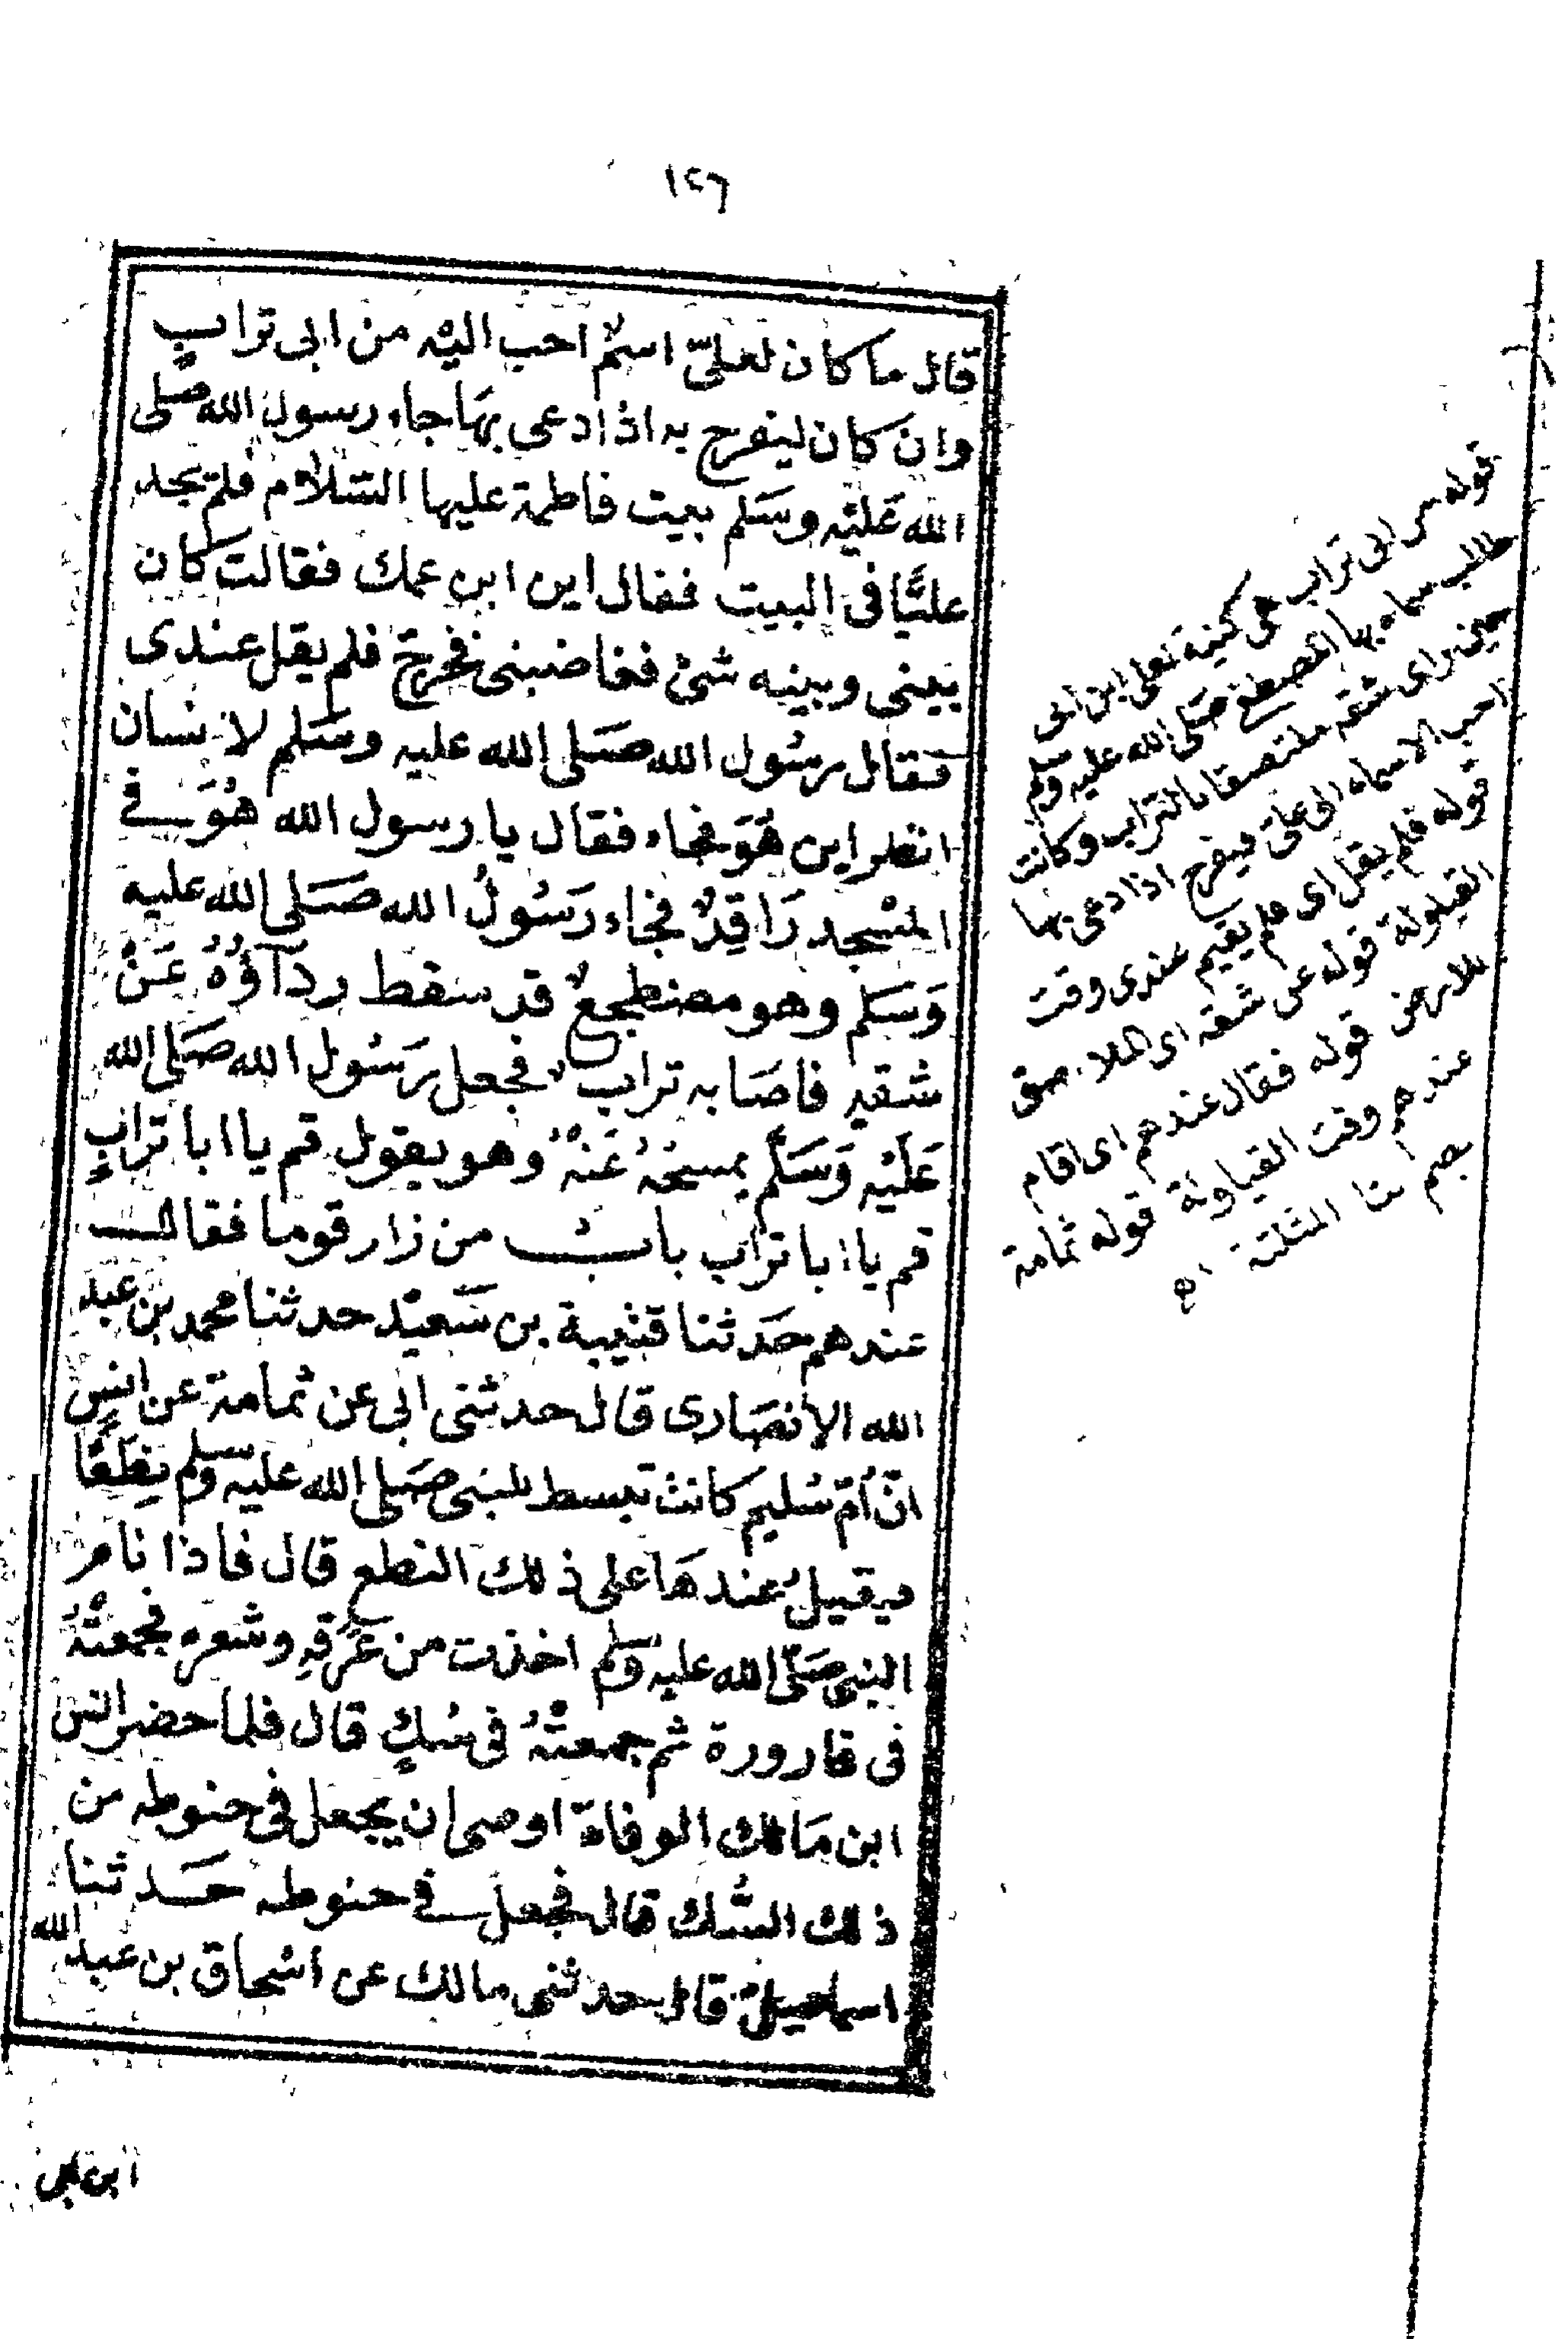 ١٢٦
قال ما كان لعليّ اسمٌ احب اليْه من ابى ترابٍ
وان كان ليفرح به اذا دعى بها جاء رسول الله صلى
الله عَليْه وسَلم بيت فاطمة عليها السّلام فلم يجد
عليًّا فى البيت فقال اين ابن عمك فقالت كان
بينى وبينه شئ فغاضبنى فخرجَ فلم يقل عندى
فقال رسُول الله صَلى الله عليه وسَلم لانسان
انظر اين هُوَ فجاء فقال يا رسول الله هُوَ فى
المسْجد رَاقِدٌ فجاء رَسُولُ الله صَلى الله عليه
وَسَلم وهو مضطجعٌ قد سقط ردَآؤُهُ عَنْ
شقه فاصَابه ترابٌ فجعل رَسُول الله صَلى الله
عَليْه وَسَلَّم يمسحُهُ عَنْهُ وهو يقول قم يا ابا ترابٍ
قم يا ابا تراب بابْ من زار قوما فقال
عندهم حَدثنا قتيبة بن سَعيْد حدثنا محمد بن عبد
الله الانصَارى قال حدثنى ابى عن ثمامة عن انسٍ
انّ اُمّ سُليم كانتْ تبسط للنبى صَلى الله عليه وسلم نِطَعًا
فيقيلُ عندهَا على ذلك النطع قال فاذا نام
النبى صَلّى الله عليه وسلم اخذت من عَرَقهِ وشعره فجمعتْهُ
فى قارورة ثم جمعتْهُ فى سُكٍ قال فلما حضر انس
ابن مَالك الوفاةُ اوصى ان يجعل فى حنوطه من
ذلك السُّك قال فجعل فى حنوطه حَدثنا
اسماعيل قال حدثنى مالك عن اسْحاق بن عبد الله
ابن ابى
قوله من ابى تراب هى كنية لعلى ابن ابى
طالب سماه بها المصطفى صَلى الله عليه وسلم
حين راى شقه ملتصقا بالتراب وكانت
احب الاسماء الى على فيفرح اذا دعى بها
قوله فلم يقل اى فلم يقيم عندى وقت
القيلولة قوله عن شقه اى الملاصق
للارض قوله فقال عندهم اى اقام
عندهم وقت القيلولة قوله ثمامة
بضم الثا المثلثة اه